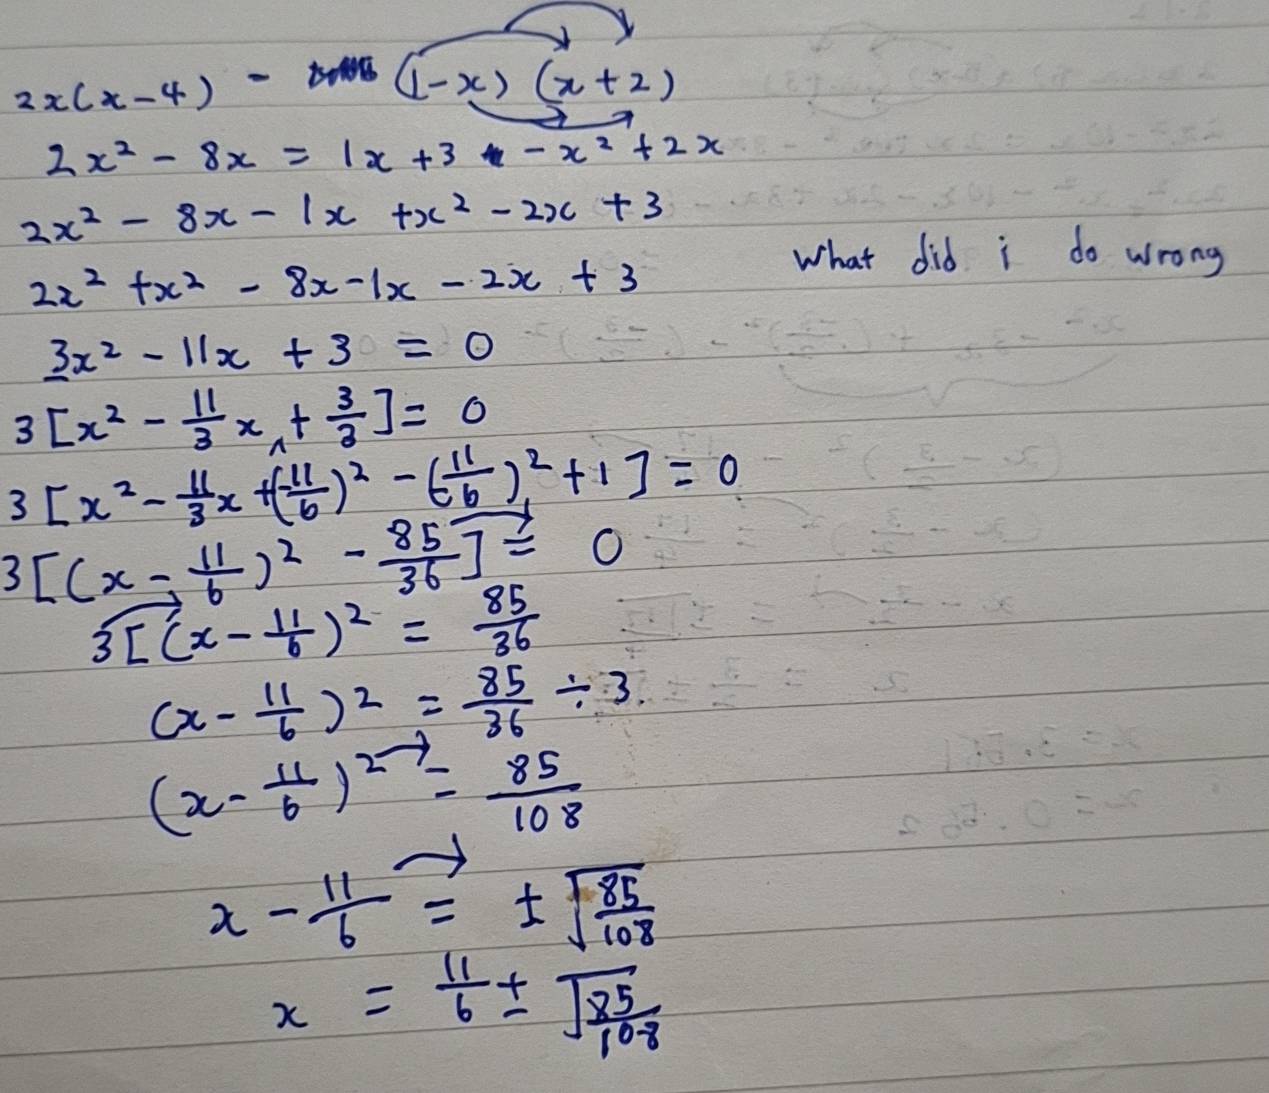 2x(x-4) - (1-x) (x+2)
2x² - 8x = 1x +3 - x² +2x
2x² - 8x - 1x +x² - 2x +3
2x² +x² - 8x -1x - 2x + 3
what did i do wrong
3x² - 11x + 3 = 0
3[x² - 11/3 x + 3/3] = 0
3[x² - 11/3 x + (-11/6)² - (-11/6)² + 1] = 0
3[(x - 11/6)² - 85/36] = 0
3[(x - 11/6)² = 85/36
(x - 11/6)² = 85/36 ÷ 3.
(x - 11/6)² = 85/108
x - 11/6 = ± √85/108
x = 11/6 ± √85/108